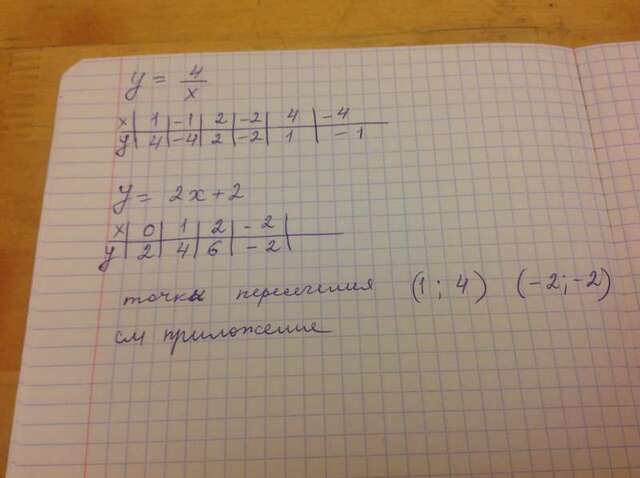 y = 4/x
x | 1 | -1 | 2 | -2 | 4 | -4
y | 4 | -4 | 2 | -2 | 1 | -1
y = 2x+2
x | 0 | 1 | 2 | -2 |
y | 2 | 4 | 6 | -2 |
точки пересечения (1; 4) (-2;-2)
см приложение